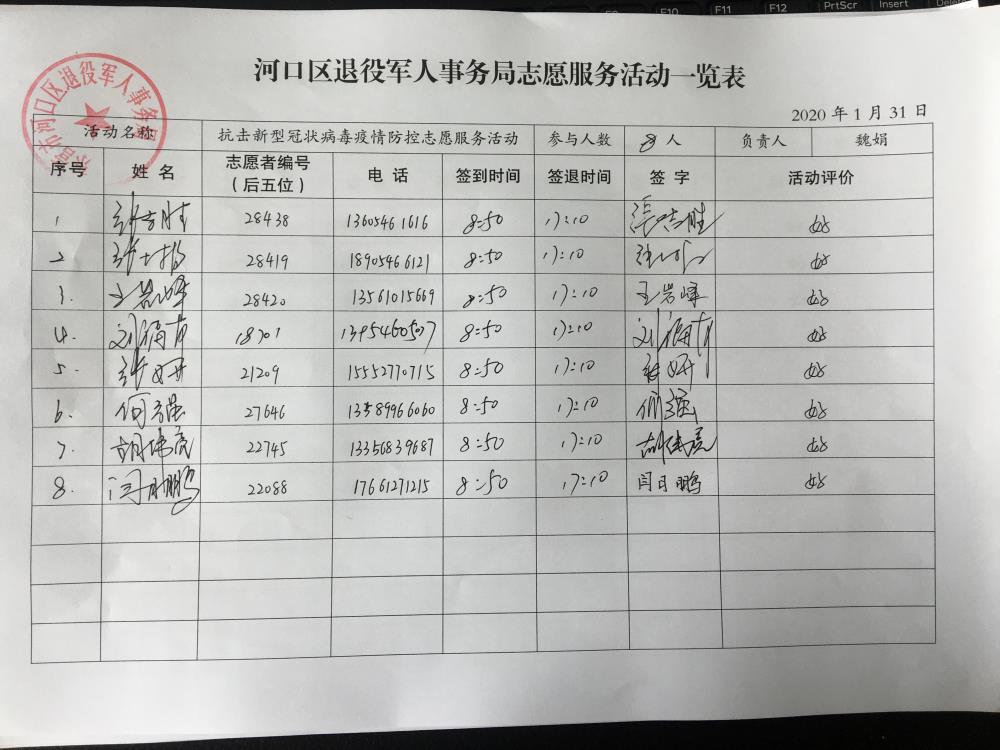 F10 F11 F12 PrtScr Insert
河口区退役军人事务局志愿服务活动一览表
2020 年 1 月 31 日
活动名称 抗击新型冠状病毒疫情防控志愿服务活动 参与人数 8 人 负责人 魏娟
序号 姓 名 志愿者编号(后五位) 电 话 签到时间 签退时间 签 字 活动评价
1 28438 13605461616 8:50 17:10 张志胜 好
2 28419 18905466121 8:50 17:10 好
3. 王岩峰 28420 13561015669 8:50 17:10 王岩峰 好
4. 18701 8:50 17:10 好
5. 张妍 21209 15552770715 8:50 17:10 张妍 好
6. 何强 27646 13589966060 8:50 17:10 何强 好
7. 胡伟亮 22745 13356839687 8:50 17:10 胡伟亮 好
8. 闫月鹏 22088 17661271215 8:50 17:10 闫月鹏 好
河口区退役军人事务局